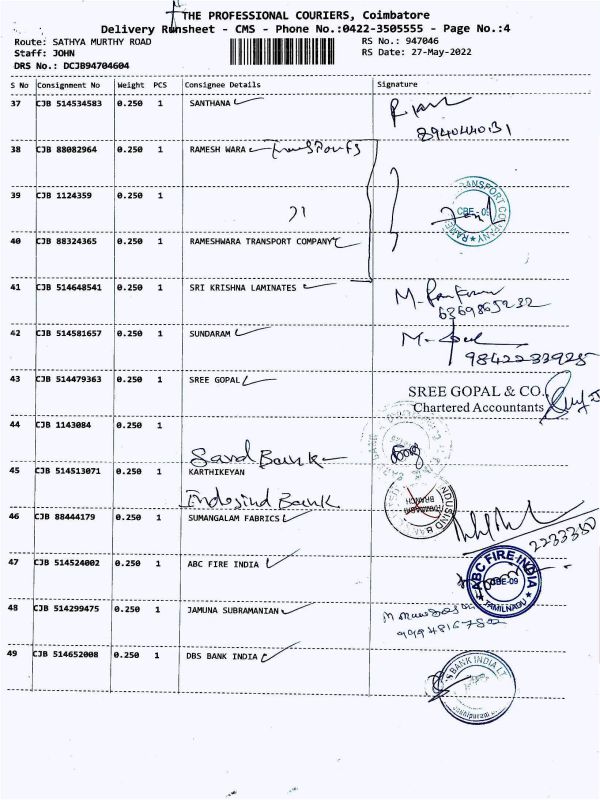 THE PROFESSIONAL COURIERS, Coimbatore
Delivery Runsheet - CMS - Phone No.:0422-3505555 - Page No.:4
Route: SATHYA MURTHY ROAD
RS No.: 947046
Staff: JOHN
RS Date: 27-May-2022
DRS No.: DCJB94704604
S No Consignment No Weight PCS Consignee Details Signature
37 CJB 514534583 0.250 1 SANTHANA
8940440131
38 CJB 88082964 0.250 1 RAMESH WARA Transports
39 CJB 1124359 0.250 1
CBE - 09
40 CJB 88324365 0.250 1 RAMESHWARA TRANSPORT COMPANY
41 CJB 514648541 0.250 1 SRI KRISHNA LAMINATES
6369865232
42 CJB 514581657 0.250 1 SUNDARAM
9842233925
43 CJB 514479363 0.250 1 SREE GOPAL
SREE GOPAL & CO.
Chartered Accountants
44 CJB 1143084 0.250 1
Bank
45 CJB 514513071 0.250 1 KARTHIKEYAN
Indusind Bank
INDUSIND BANK
BRANCH
46 CJB 88444179 0.250 1 SUMANGALAM FABRICS
2233350
47 CJB 514524002 0.250 1 ABC FIRE INDIA
ABC FIRE INDIA
CBE-09
TAMILNADU
48 CJB 514299475 0.250 1 JAMUNA SUBRAMANIAN
49 CJB 514652008 0.250 1 DBS BANK INDIA
BANK INDIA LT